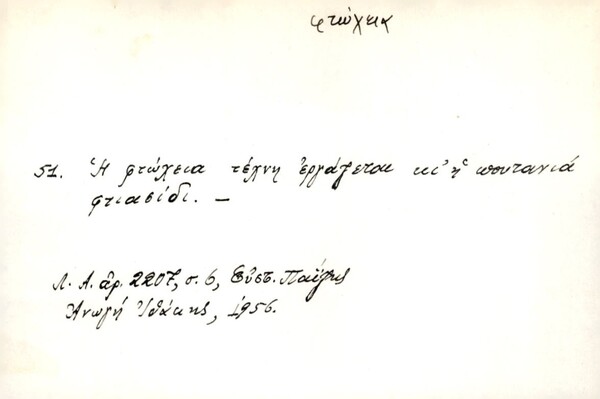 φτώχεια
51. Ἡ φτώχεια τέχνη ἐργάζεται κι' ἡ πουτανιά
φτιασίδι. —
Λ. Α. ἀρ. 2207, σ. 6, Εὐστ. Παΐζης
Ἀνωγή Ἰθάκης, 1956.